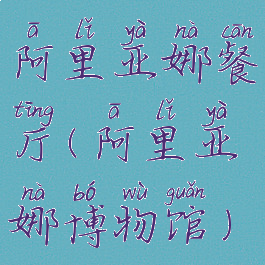 ā lǐ yà nà cān
阿里亚娜餐
tīng ā lǐ yà
厅(阿里亚
nà bó wù guǎn
娜博物馆)